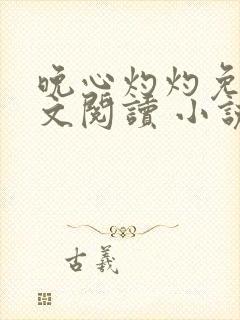 晚心灼灼免
文閱讀 小說
古羲